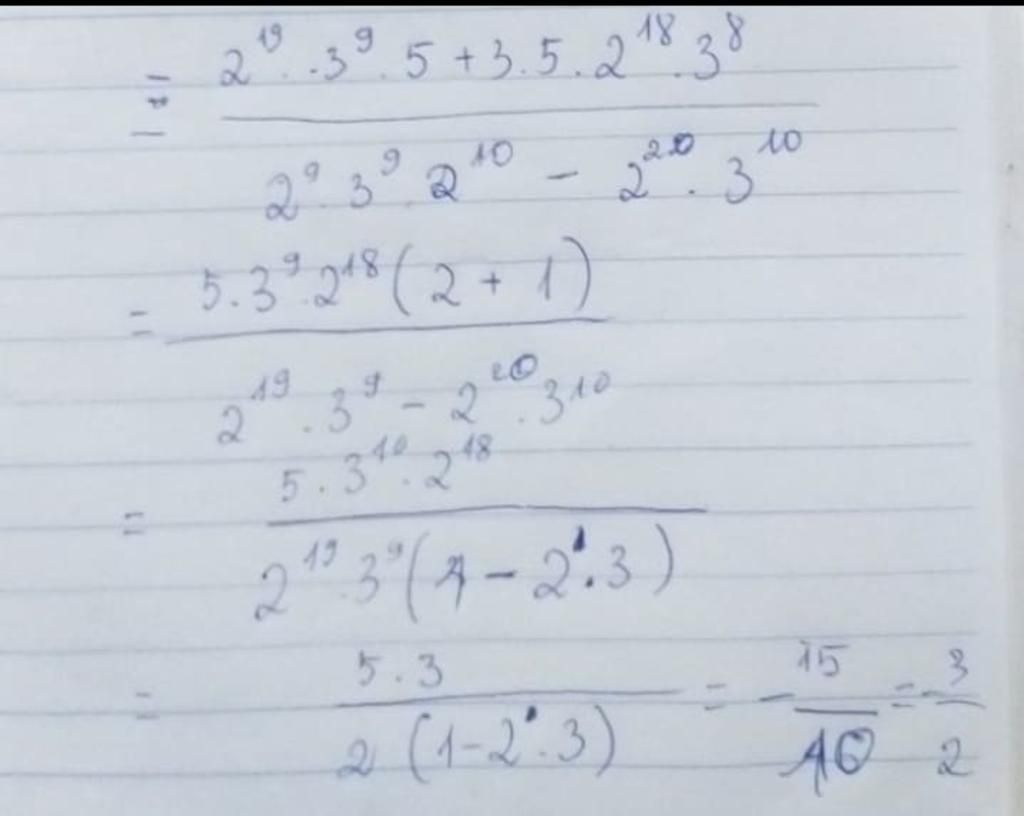 = 2^19 . . 3^9 . 5 + 3 . 5 . 2^18 . 3^8
2^9 . 3^9 . 2^10 - 2^20 . 3^10
= 5 . 3^9 . 2^18 ( 2 + 1 )
2^19 . 3^9 - 2^20 . 3^10
= 5 . 3^10 . 2^18
2^19 . 3^9 ( 1 - 2^1 . 3 )
= 5 . 3 = - 15 = - 3
2 ( 1 - 2^1 . 3 ) 10 2